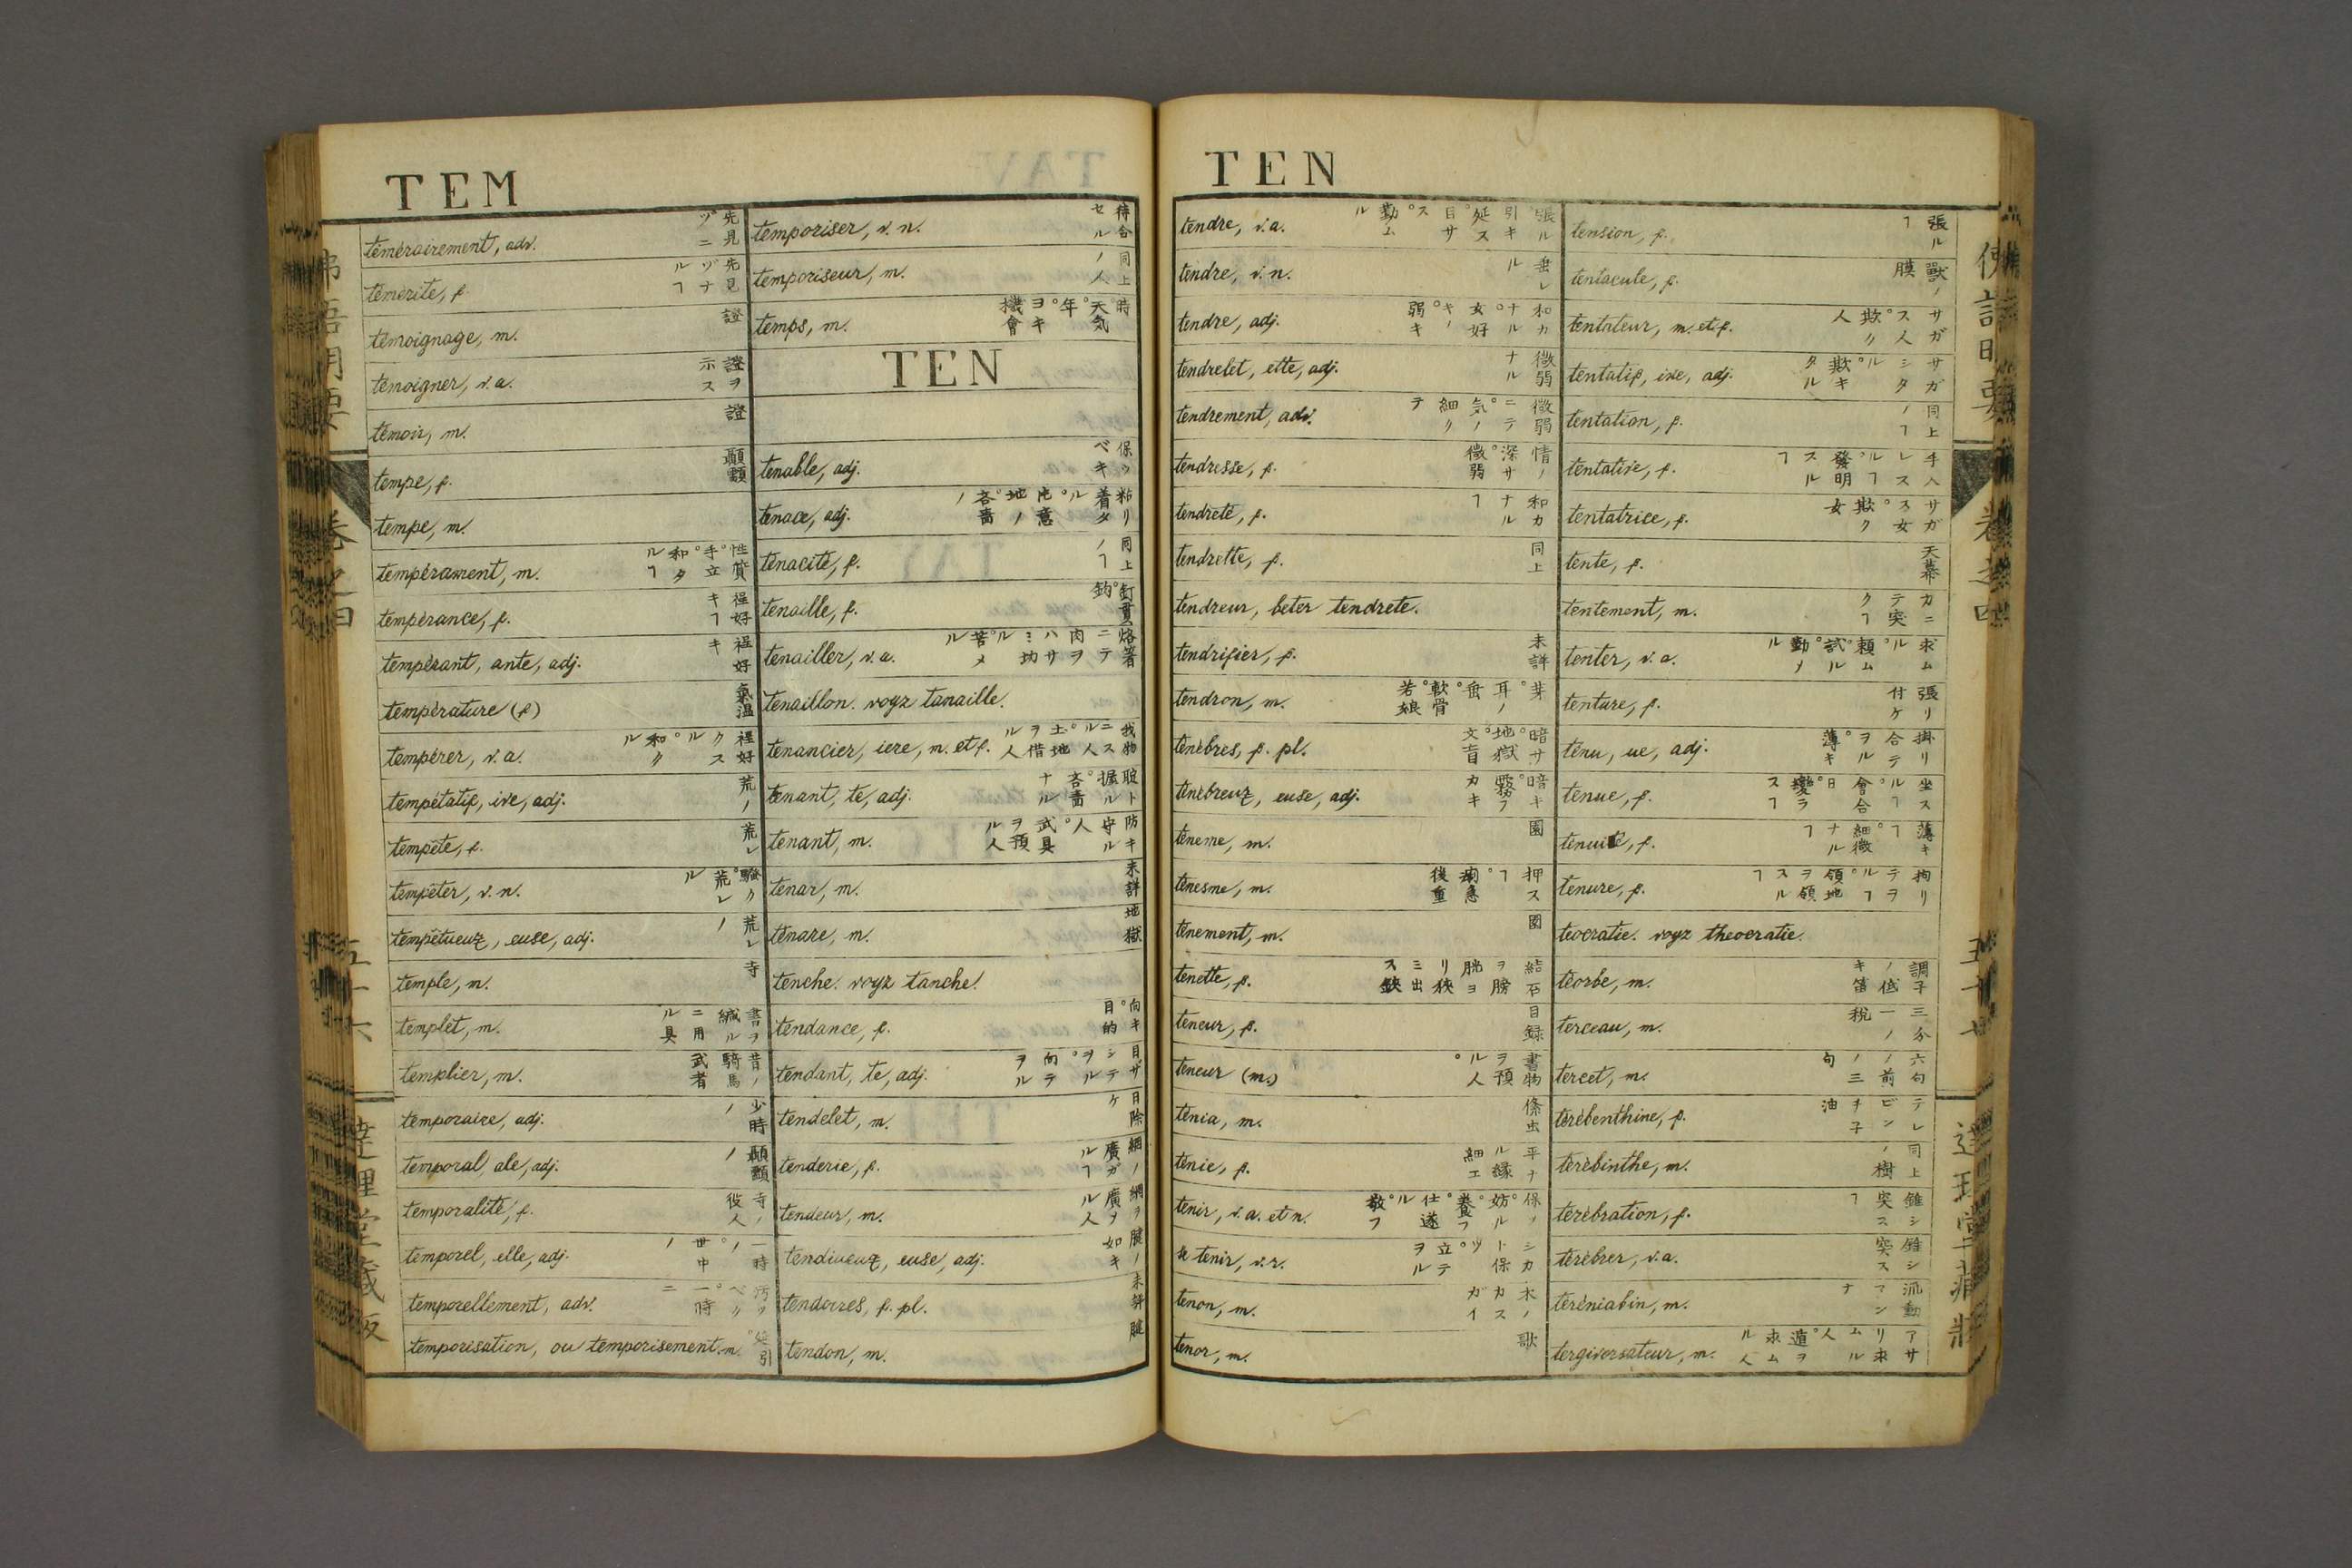 TEM
témérairement, adv. 先見ヅニ
témérité, f. 先見ヅナルヿ
témoignage, m. 證
témoigner, v. a. 證ヲ示ス
témoir, m. 證
tempe, f. 顳顬
tempe, m.
tempérament, m. 性質°手立°和タルヿ
tempérance, f. 程好キヿ
tempérant, ante, adj. 程好キ
température (f) 氣温
tempérer, v. a. 程好クスル°和クル
tempétatif, ive, adj. 荒ノ
tempête, f. 荒レ
tempêter, v. n. 騒ク°荒レル
tempétueux, euse, adj. 荒レノ
temple, m. 寺
templet, m. 書ヲ緘ルニ用ル具
templier, m. 昔ノ騎馬武者
temporaire, adj. 少時ノ
temporal, ale, adj. 顳顬ノ
temporalité, f. 寺ノ役人
temporel, elle, adj. 一時ノ°世中ノ
temporellement, adv. 一時ニ
temporisation, ou temporisement. m. 延引
temporiser, v. n. 待合セル
temporiseur, m. 同上ノ人
temps, m. 時°天気°年°ヨキ機會
TEN
tenable, adj. 保ツベキ
tenace, adj. 粘リ着タル°吝嗇ノ
ténacité, f. 同上ノヿ
tenaille, f. 釘貫°鉤
tenailler, v. a. 烙箸ニテ肉ヲハサミ切ル°苦メル
tenaillon. voyz tanaille.
tenancier, iere, m. et f. 我物ニスル人°土地ヲ借ル人
tenant, te, adj. 堀ル°吝嗇ナル
tenant, m. 防キ守ル人°武具ヲ預ル人
tenar, m. 未詳
ténare, m. 地獄
tenche. voyz tanche.
tendance, f. 向キ°目的
tendant, te, adj. 目ザシテヲル°向テヲル
tendelet, m. 日除ケ
tenderie, f. 網ノ廣ガルヿ
tendeur, m. 網ヲ廣ケル人
tendineux, euse, adj. 腱ノ如キ
tendoires, f. pl. 未詳
tendon, m. 腱
TEN
tendre, v. a. 張ル°引キ延ス°目サス°勤ムル
tendre, v. n. 垂レル
tendre, adj. 和カナル°女好キノ°弱キ
tendrelet, ette, adj. 微弱ナル
tendrement, adv. 微弱ニテ°気ノ細クテ
tendresse, f. 情ノ深サ°微弱
tendreté, f. 和カナルヿ
tendrette, f. 同上
tendreur, beter tendrete.
tendrifier, f. 未詳
tendron, m. 芽°耳ノ垂°軟骨°若娘
ténèbres, f. pl. 暗サ°地獄°文盲
ténébreux, euse, adj. 暗キ°霧フカキ
téneme, m. 園
ténesme, m. 押スヿ°痢急後重
tènement, m. 園
tenette, f. 結石ヲ膀胱ヨリ挾ミ出ス鋏
teneur, f. 目録
teneur (m.) 書物ヲ預ル人°
ténia, m. 絛虫
ténie, f. 平ナル縁細エ
tenir, v. a. et n. 保ツ°妨ル°養フ°仕遂ル°敬フ
se tenir, v. r. シカト保ツ°立テヲル
tenon, m. 木ノカスガイ
tenor, m. 歌
tension, f. 張ルヿ
tentacule, f. 獸ノ膜
tentateur, m. et f. サガス人°欺ク人
tentatif, ive, adj. サガシタル°欺キタル
tentation, f. 同上ノヿ
tentative, f. 手入レスルヿ°發明スルヿ
tentatrice, f. サガス女°欺ク女
tente, f. 天幕
tentement, m. カニテ突クヿ
tenter, v. a. 求ムル°頼ム°試ル°勤メル
tenture, f. 張リ付ケ
ténu, ue, adj. 掛リ合テヲル°薄キ
tenue, f. 坐スルヿ°會合日°變ラスヿ
tenuite, f. 薄キヿ°細微ナルヿ
tenure, f. 拘リテヲルヿ°領地ヲ領スルヿ
teocratie. voyz theocratie.
téorbe, m. 調子ノ低キ笛
terceau, m. 三分一ノ税
tercet, m. 六句ノ前ノ三句
térébenthine, f. テレビンチ子油
térébinthe, m. 同上ノ樹
térébration, f. 錐シ突スヿ
térébrer, v. a. 錐シ突ス
téréniabin, m. 流動マンナ
tergiversateur, m. アサリ求ムル人°遁ヲ求ムル人
卷之四